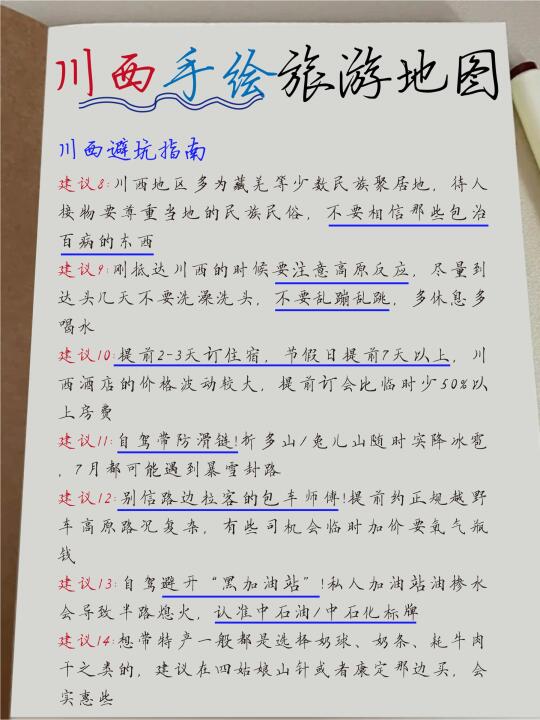 川西手绘旅游地图
川西避坑指南
建议8:川西地区多为藏羌等少数民族聚居地，待人
接物要尊重当地的民族民俗，不要相信那些包治
百病的东西
建议9:刚抵达川西的时候要注意高原反应，尽量到
达头几天不要洗澡洗头，不要乱蹦乱跳，多休息多
喝水
建议10:提前2-3天订住宿，节假日提前7天以上，川
西酒店的价格波动较大，提前订会比临时少50%以
上房费
建议11:自驾带防滑链!折多山/兔儿山随时突降冰雹
，7月都可能遇到暴雪封路
建议12:别信路边拉客的包车师傅!提前约正规越野
车高原路况复杂，有些司机会临时加价要氧气瓶
钱
建议13:自驾避开“黑加油站”!私人加油站油掺水
会导致半路熄火，认准中石油/中石化标牌
建议14:想带特产一般都是选择奶球、奶条、牦牛肉
干之类的，建议在四姑娘山针或者康定那边买，会
实惠些